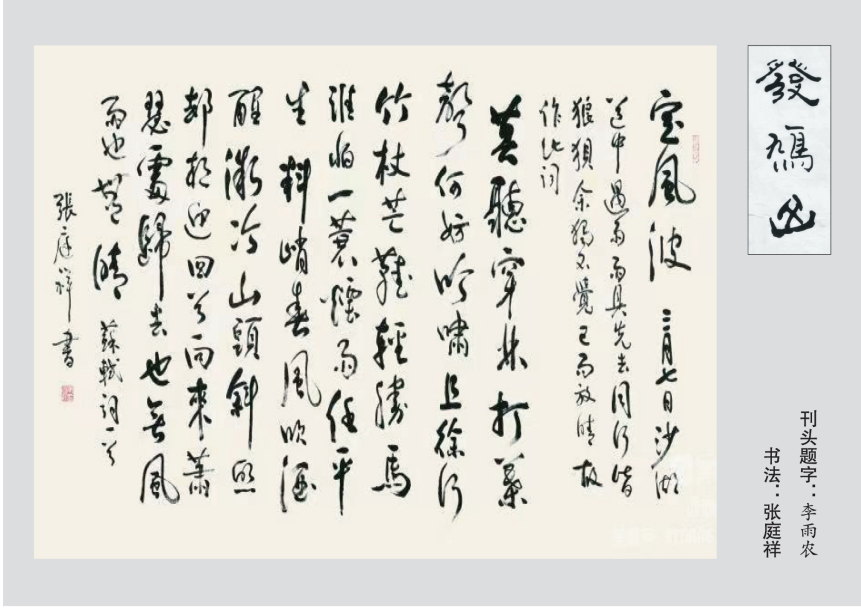 發鳩山
刊头题字：李雨农
书法：张庭祥
定風波 三月七日沙湖
道中遇雨雨具先去同行皆
狼狽余獨不覺已而放晴故
作此詞
莫聽穿林打葉
聲何妨吟嘯且徐行
竹杖芒鞋輕勝馬
誰怕一蓑煙雨任平
生料峭春風吹酒
醒微冷山頭斜照
却相迎回首向來蕭
瑟處歸去也無風
雨也無晴 蘇軾詞一首
張庭祥書